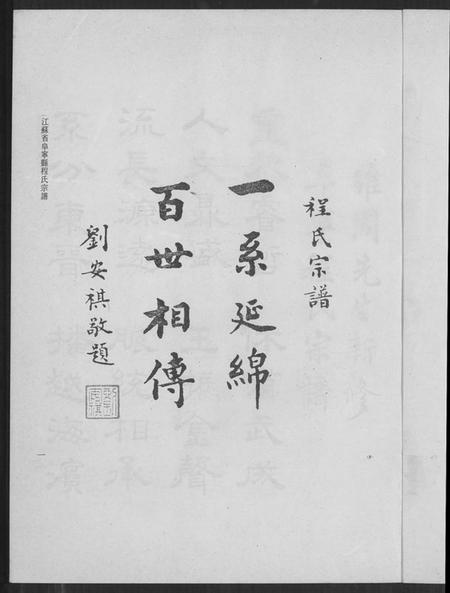 程氏宗譜
一系延綿
百世相傳
劉安祺敬題
江蘇省阜寧縣程氏宗譜
一